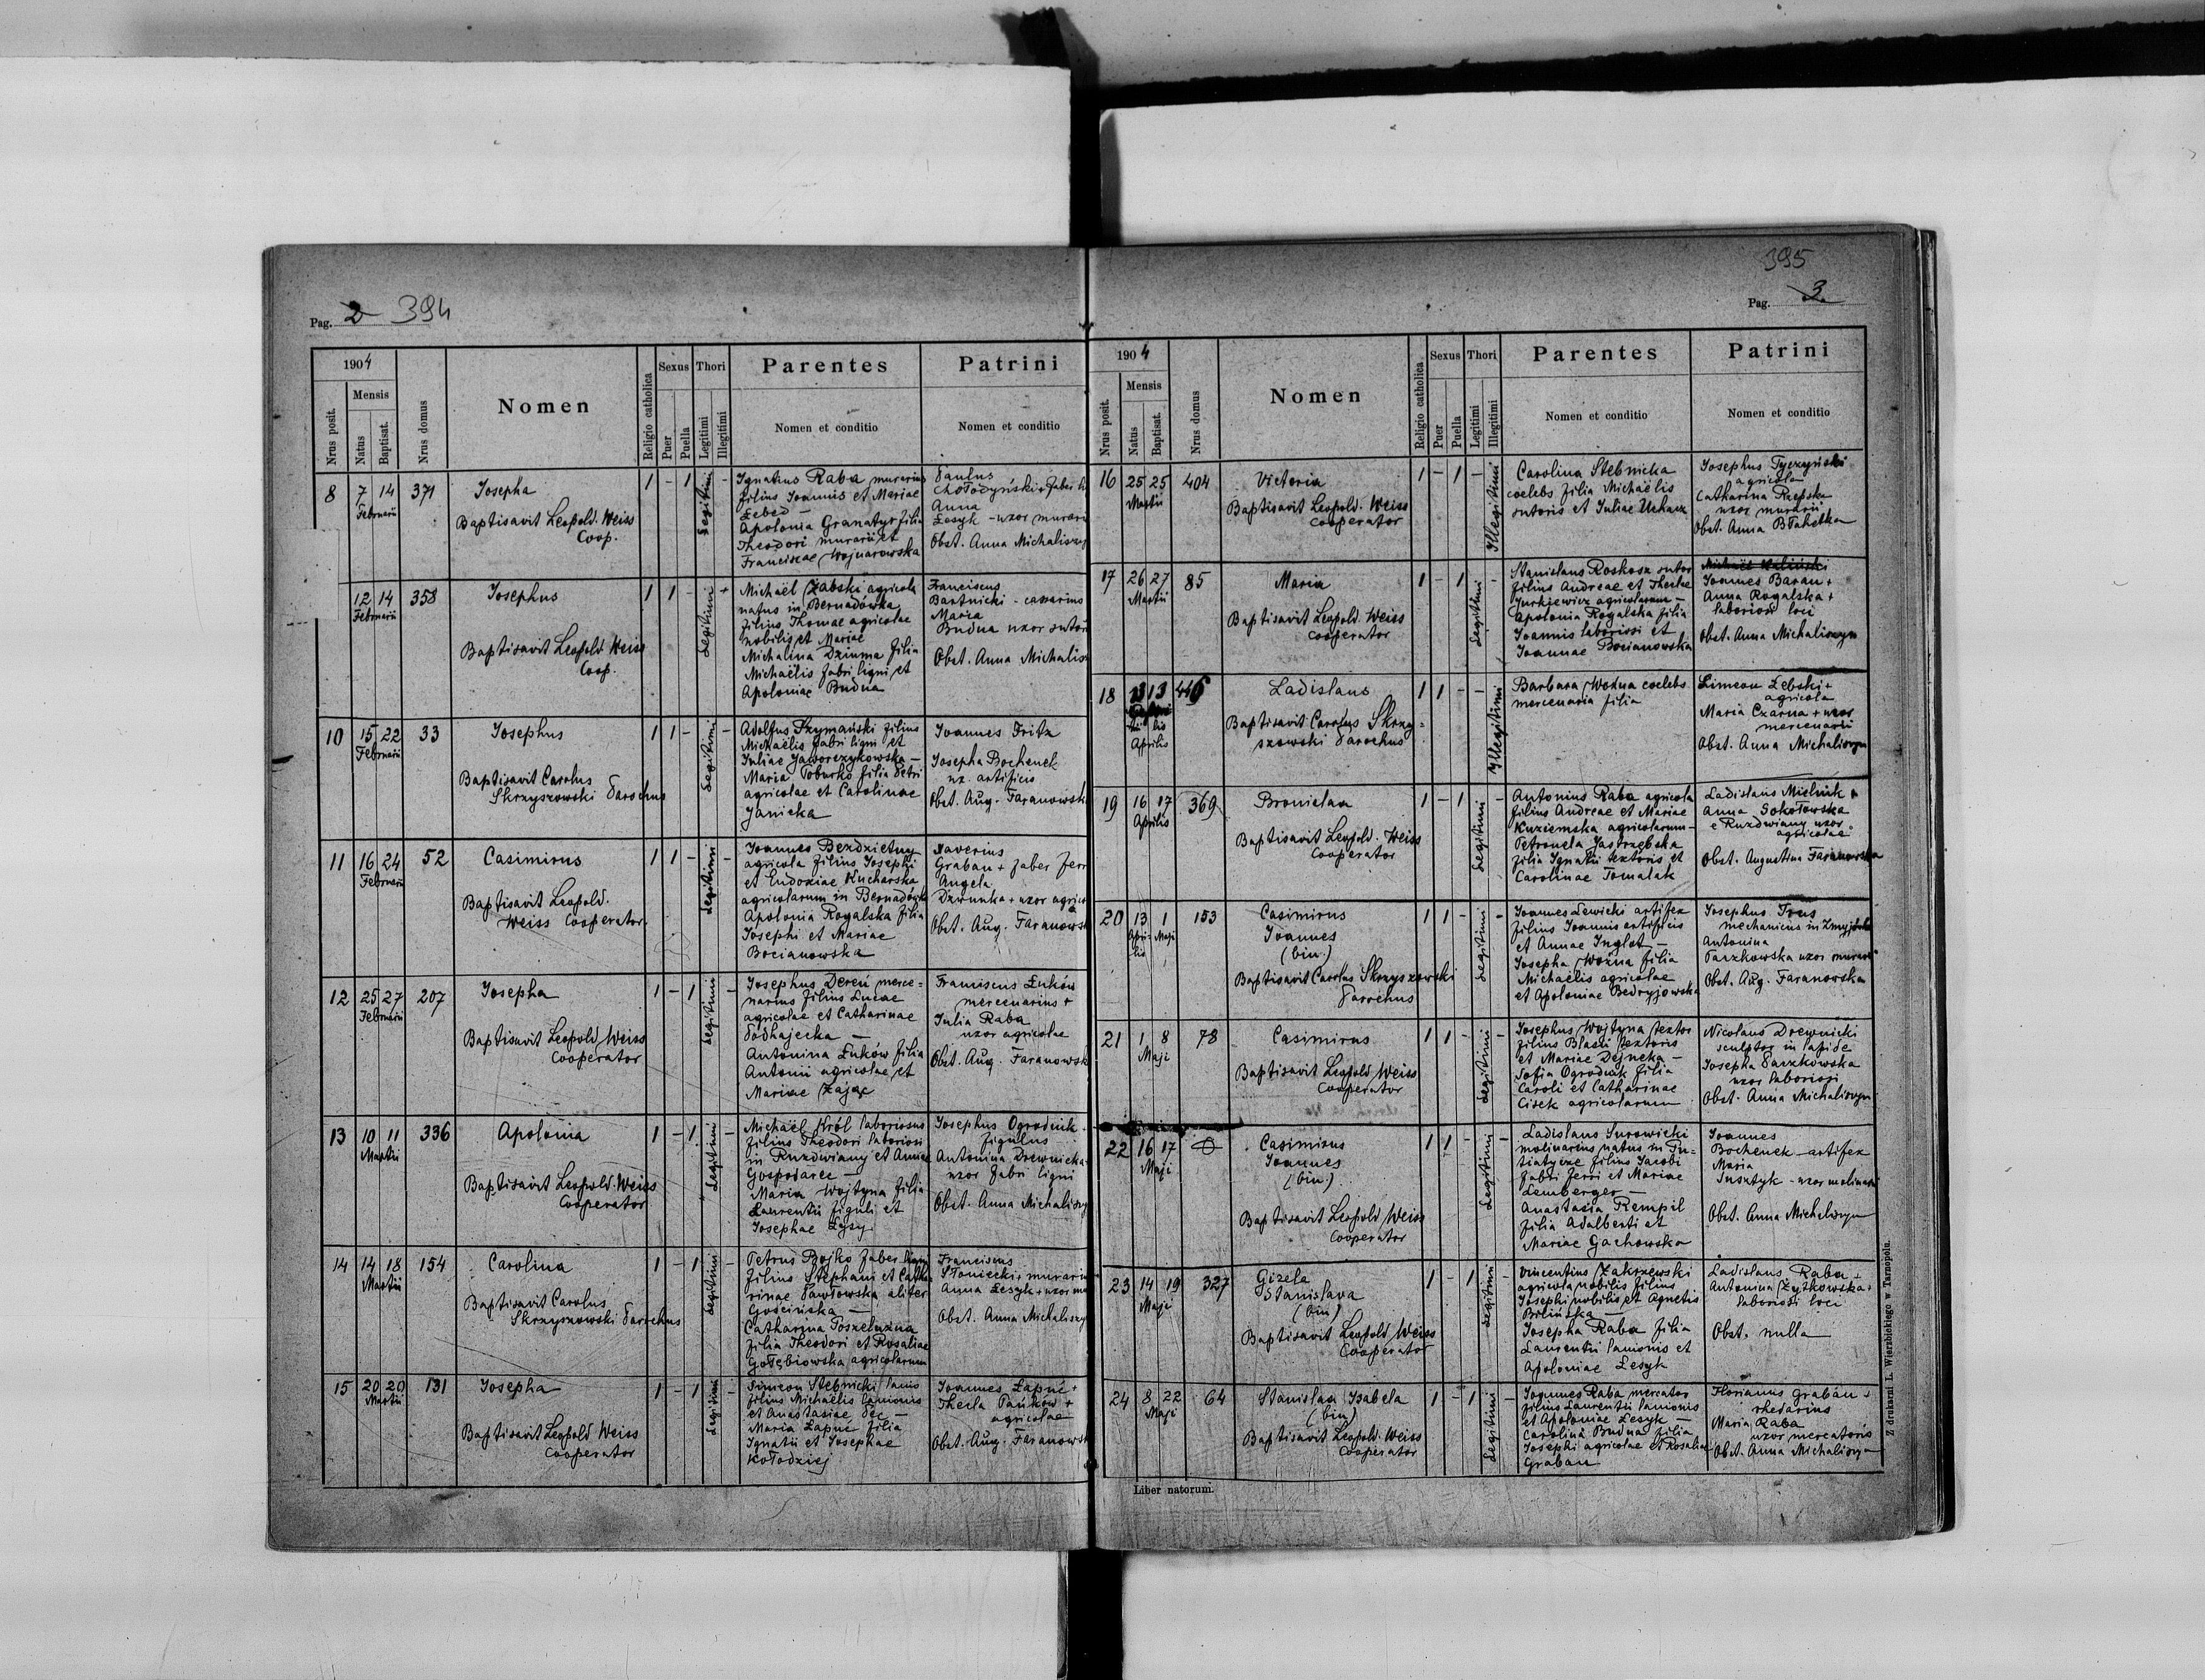 Pag. 2 394
1904
Mensis
Nrus posit.
Natus
Baptisat.
Nrus domus
Nomen
Religio catholica
Sexus
Puer
Puella
Thori
Legitimi
Illegitimi
Parentes
Nomen et conditio
Patrini
Nomen et conditio
8 7 14 371
Februarii
Josepha
Baptisavit Leopold. Weiss
Coop.
1 - 1 Legitimi -
Ignatius Raba murarius
filius Joannis et Mariae
Łebed —
Apolonia Granatyr filia
Theodori murarii et
Franciscae Wojnarowska
Paulus
Chołodyński + faber
Anna
Lesyk - uxor murarii
Obst. Anna Michaliszyn
12 14 358
Februarii
Josephus
Baptisavit Leopold Weiss
Coop.
1 1 - Legitimi +
Michaël Żabski agricola
natus in Bernadówka
filius Thomae agricolae
nobilis et Mariae
Michalina Dziuma filia
Michaëlis fabri ligni et
Apoloniae Budna
Franciscus
Bartnicki - cassarius
Maria
Budna uxor sutoris
Obst. Anna Michalis
10 15 22 33
Februarii
Josephus
Baptisavit Carolus
Skrzyszowski Parochus
1 1 - Legitimi -
Adolfus Szymański filius
Michaëlis fabri ligni et
Juliae Jaworczykowska —
Maria Poburko filia Petri
agricolae et Carolinae
Janicka
Joannes Fritz
Josepha Bochenek
ux. artificis
Obst. Aug. Faranowsk
11 16 24 52
Februarii
Casimirus
Baptisavit Leopold.
Weiss Cooperator.
1 1 - Legitimi -
Joannes Bezdzietny
agricola filius Josephi
et Eudoxiae Kucharska
agricolarum in Bernadówka
Apolonia Rogalska filia
Josephi et Mariae
Bocianowska
Xaverius
Graban + faber ferr
Angela
Dzwunka + uxor agricol
Obst. Aug. Faranows
12 25 27 207
Februarii
Josepha
Baptisavit Leopold Weiss
Cooperator
1 - 1 Legitimi -
Josephus Dereń merce=
narius filius Lucae
agricolae et Catharinae
Podhajecka —
Antonina Łuków filia
Antonii agricolae et
Mariae Zając
Franciscus Łuków
mercenarius +
Julia Raba
uxor agricolae
Obst. Aug. Faranowsk
13 10 11 336
Martii
Apolonia
Baptisavit Leopold. Weiss
Cooperator
1 - 1 Legitimi -
Michaël Król laboriosus
filius Theodori laboriosi
in Ruzdwiany et Annae
Gospodarec —
Maria Wojtyna filia
Laurentii figuli et
Josephae Łysy
Josephus Ogrodnik
figulus
Antonina Drewnicka
uxor fabri ligni
Obst. Anna Michaliszy
14 14 18 154
Martii
Carolina
Baptisavit Carolus
Skrzyszowski Parochus
1 - 1 Legitimi -
Petrus Bojko faber ligni
filius Stephani et Catha
rinae Pawłowska aliter
Gościńska —
Catharina Poszeluzna
filia Theodori et Rosaliae
Gołębiowska agricolarum
Franciscus
Słoniecki + murari
Anna Lesyk + uxor mu
Obst. Anna Michaliszy
15 20 20 131
Martii
Josepha
Baptisavit Leopold Weiss
Cooperator
1 - 1 Legitimi -
Simeon Stebnicki lanio
filius Michaëlis lanionis
et Anastasiae Pec —
Maria Łapuć filia
Ignatii et Josephae
Kołodziej
Joannes Łapuć +
Thecla Pańków +
agricolae
Obst. Aug. Faranows
395
Pag. 3
1904
Mensis
Nrus posit.
Natus
Baptisat.
Nrus domus
Nomen
Religio catholica
Sexus
Puer
Puella
Thori
Legitimi
Illegitimi
Parentes
Nomen et conditio
Patrini
Nomen et conditio
16 25 25 404
Martii
Victoria
Baptisavit Leopold. Weiss
Cooperator
1 - 1 - Illegitimi
Carolina Stebnicka
coelebs filia Michaëlis
sutoris et Juliae Uchacz
Josephus Tyczyński
agricola
Catharina Rzepska
uxor murarii
Obst. Anna Błahetka
17 26 27 85
Martii
Maria
Baptisavit Leopold. Weiss
Cooperator
1 - 1 Legitimi -
Stanislaus Roskosz sutor
filius Andreae et Theclae
Jurkiewicz agricolarum —
Apolonia Rogalska filia
Joannis laboriosi et
Joannae Bocianowska
Joannes Baran +
Anna Rogalska +
laboriosi loci
Obst. Anna Michaliszyn
18 13 13 446
Aprilis
Ladislaus
Baptisavit Carolus Skrzy=
szowski Parochus
1 1 - - Illegitimi
Barbara Woźna coelebs
mercenaria filia
Simeon Łebski +
agricola
Maria Czarna + uxor
mercenarii
Obst. Anna Michaliszyn
19 16 17 369
Aprilis
Bronislaa
Baptisavit Leopold. Weiss
Cooperator
1 - 1 Legitimi -
Antonius Raba agricola
filius Andreae et Mariae
Kuziemska agricolarum —
Petronela Jastrzębska
filia Ignatii textoris et
Carolinae Tomalak
Ladislaus Mielnik +
Anna Sokołowska
e Ruzdwiany uxor
agricolae
Obst. Augustina Faranowska
20 13 1 153
Apri-
lis
Maji
Casimirus
Joannes
(bin.)
Baptisavit Carolus Skrzyszowski
Parochus
1 1 - Legitimi -
Joannes Lewicki artifex
filius Joannis artificis
et Annae Inglot —
Josepha Woźna filia
Michaëlis agricolae
et Apoloniae Bedryjowska
Josephus
mechanicus in
Antonina
Parzkowska uxor murarii
Obst. Aug. Faranowska
21 1 8 78
Maji
Casimirus
Baptisavit Leopold Weiss
Cooperator
1 1 - Legitimi -
Josephus Wojtyna textor
filius Blasii textoris
et Mariae Dejneka —
Sofia Ogrodnik filia
Caroli et Catharinae
Cisek agricolarum
Nicolaus Drewnicki
sculptor in lapide
Josepha Parzkowska
uxor laboriosi
Obst. Anna Michaliszyn
22 16 17
Maji
Casimirus
Joannes
(bin.)
Baptisavit Leopold Weiss
Cooperator
1 1 - Legitimi -
Ladislaus Surowicki
molinarius natus in Pu=
tiatyńce filius Jacobi
fabri ferri et Mariae
Lemberger —
Anastasia Rempil
filia Adalberti et
Mariae Gachowska
Joannes
Bochenek - artifex
Maria
Susztyk - uxor molinarii
Obst. Anna Michaliszyn
23 14 19 327
Maji
Gizela
Stanislava
(bin)
Baptisavit Leopold Weiss
Cooperator
1 - 1 Legitimi -
Vincentius Zakrzewski
agricola nobilis filius
Josephi nobilis et Agnetis
Bilińska —
Josepha Raba filia
Laurentii lanionis et
Apoloniae Lesyk
Ladislaus Raba +
Antonina Żytkowska +
laboriosi loci
Obst. nulla
24 8 22 64
Maji
Stanislaa Isabela
(bin)
Baptisavit Leopold. Weiss
Cooperator
1 - 1 Legitimi -
Joannes Raba mercator
filius Laurentii lanionis
et Apoloniae Lesyk —
Carolina Budna filia
Josephi agricolae et Rosaliae
Graban
Florianus Graban +
rhedarius
Maria Raba
uxor mercatoris
Obst. Anna Michaliszyn
Liber natorum.
Z drukarni L. Wierzbickiego w Tarnopolu.